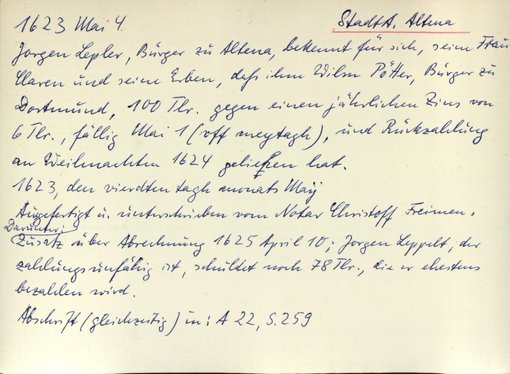 1623 Mai 4. StadtA. Altena
Jorgen Lepler, Bürger zu Altena, bekennt für sich, seine Frau
Claren und seine Erben, daß ihm Wilm Pötter, Bürger zu
Dortmund, 100 Tlr. gegen einen jährlichen Zins von
6 Tlr., fällig Mai 1 (vff meytagh), und Rückzahlung
an Weihnachten 1624 geliehen hat.
1623, den vierdten tagh monats Maÿ
Ausgefertigt u. unterschrieben vom Notar Christoff Freimen.
Darunter:
Zusatz über Abrechnung 1625 April 10; Jorgen Leppelt, der
zahlungsunfähig ist, schuldet noch 78 Tlr., die er ehestens
bezahlen wird.
Abschrift (gleichzeitig) in: A 22, S. 259